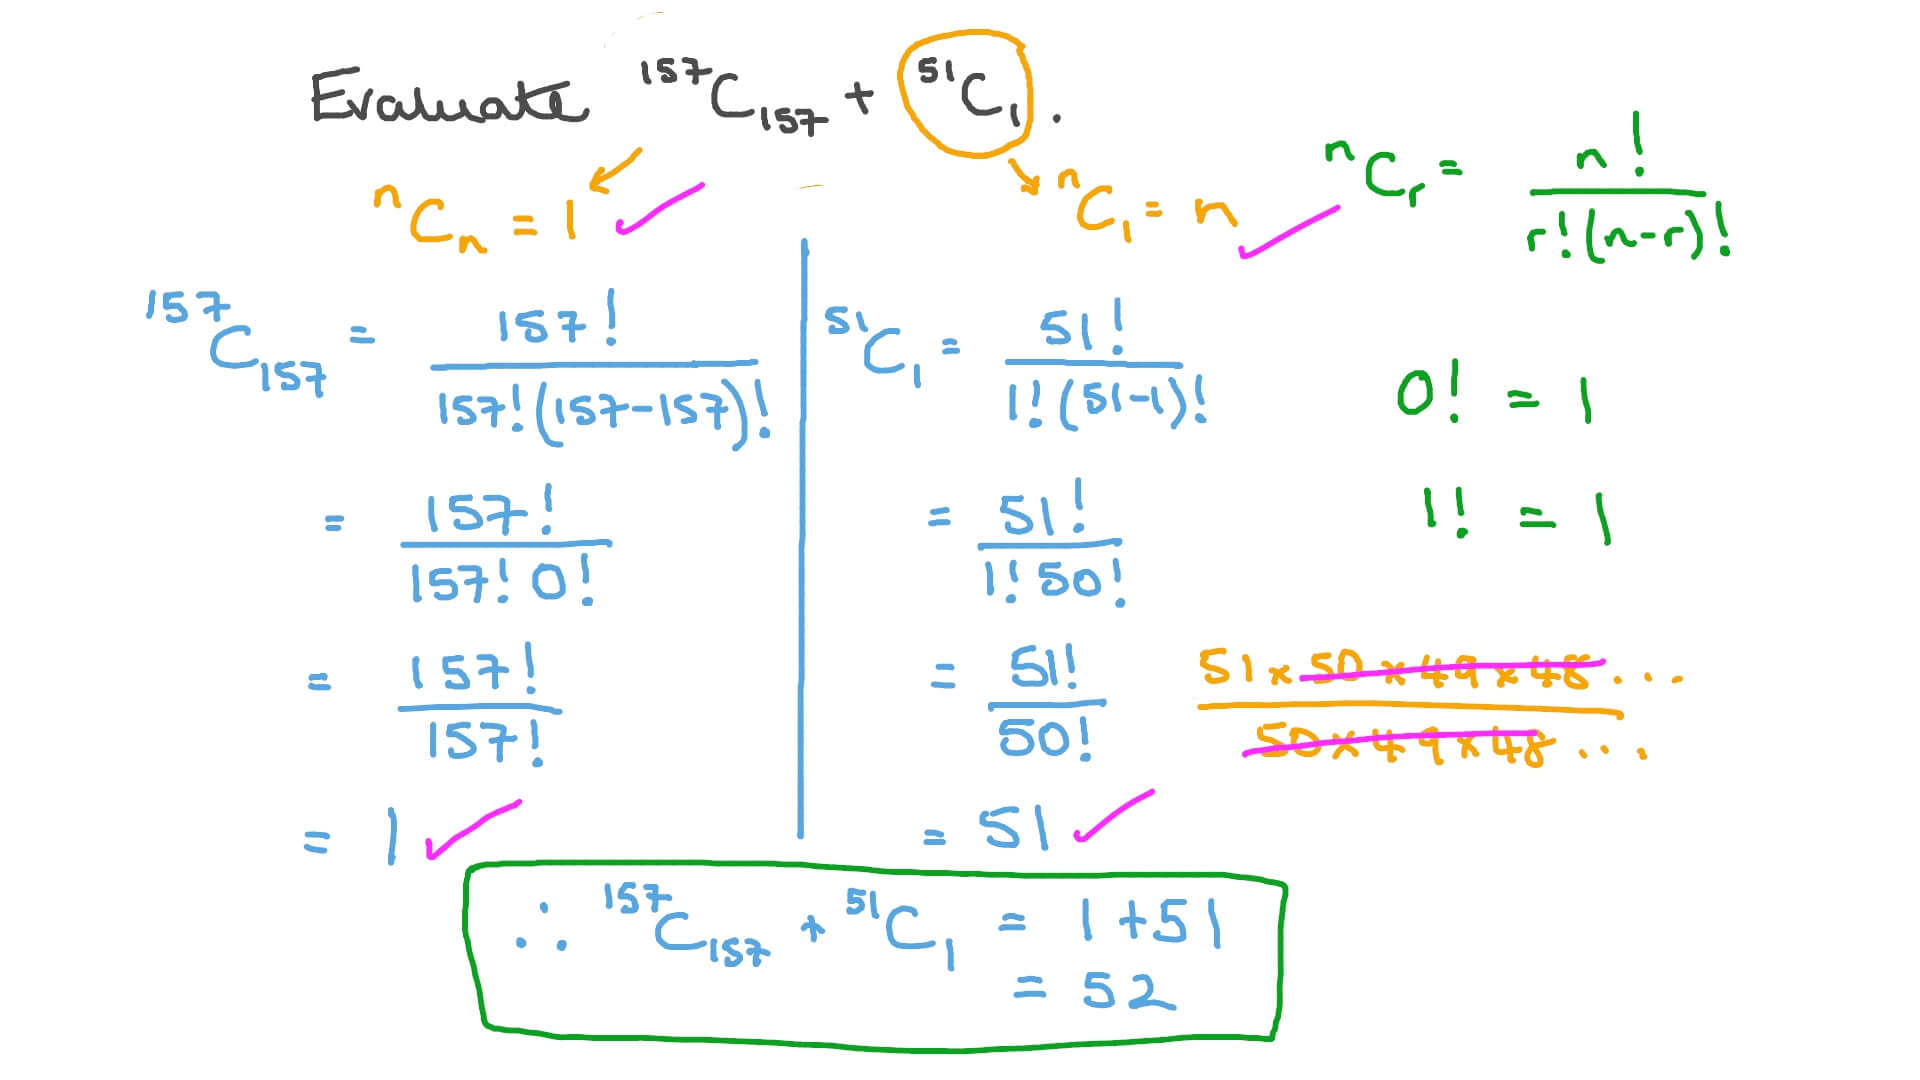 Evaluate ¹⁵⁷C₁₅₇ + ⁵¹C₁.
ⁿCₙ = 1
ⁿC₁ = n
ⁿCᵣ = n! / r!(n-r)!
¹⁵⁷C₁₅₇ = 157! / 157!(157-157)!
= 157! / 157! 0!
= 157! / 157!
= 1
⁵¹C₁ = 51! / 1!(51-1)!
= 51! / 1! 50!
= 51! / 50!
51 × 50 × 49 × 48 ... / 50 × 49 × 48 ...
= 51
0! = 1
1! = 1
∴ ¹⁵⁷C₁₅₇ + ⁵¹C₁ = 1 + 51
= 52